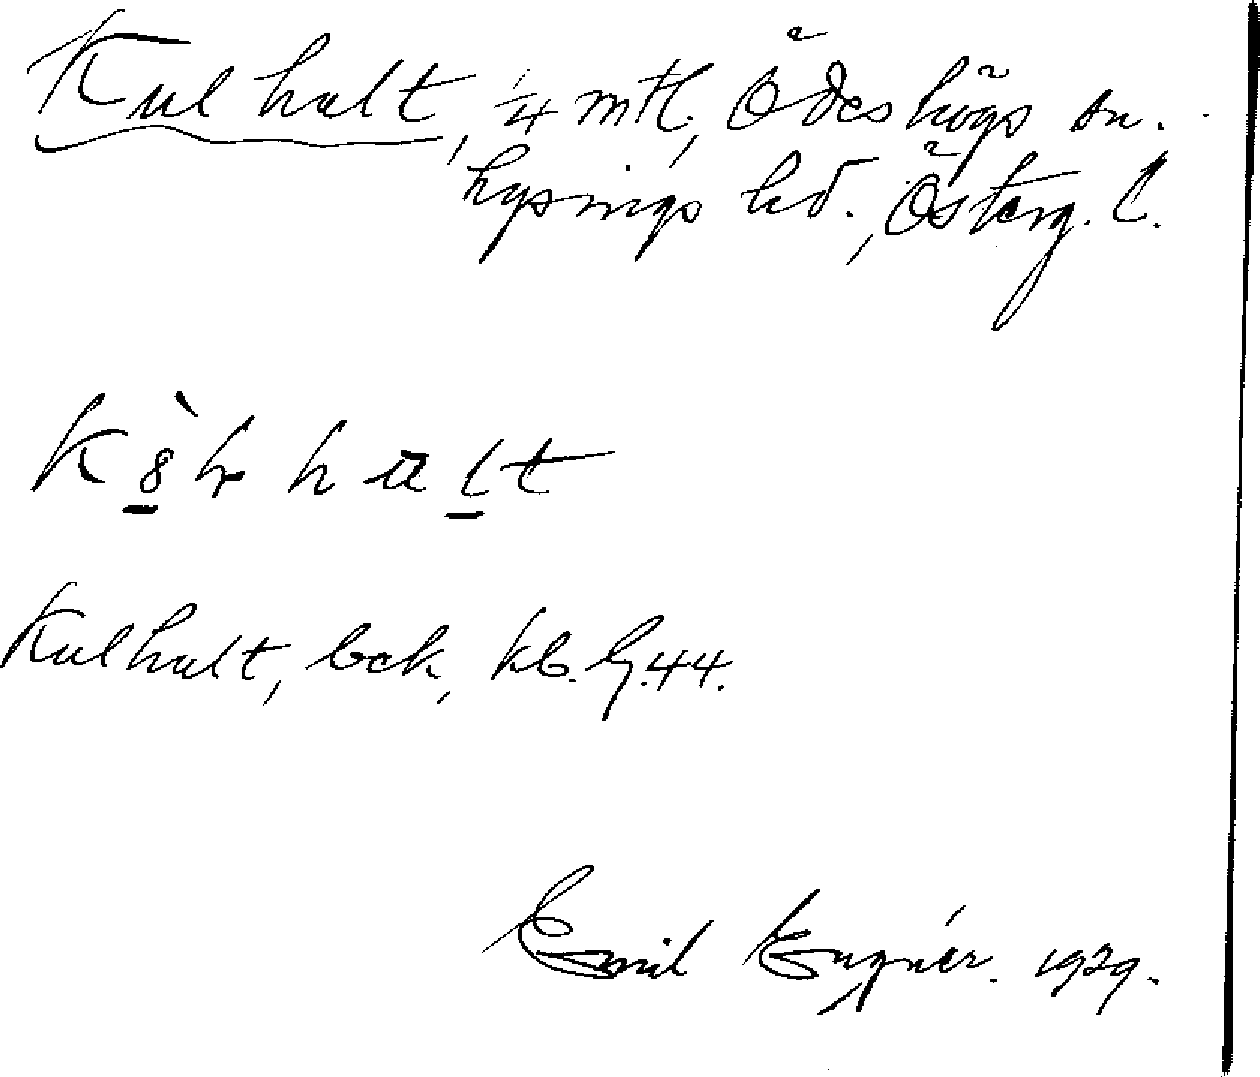 Kulhult, 1/4 mtl, Ödeshögs sn.
Lysings hd., Österg. L.
Kulhult, bek, kb. G. 44.
Emil Engnér. 1929.